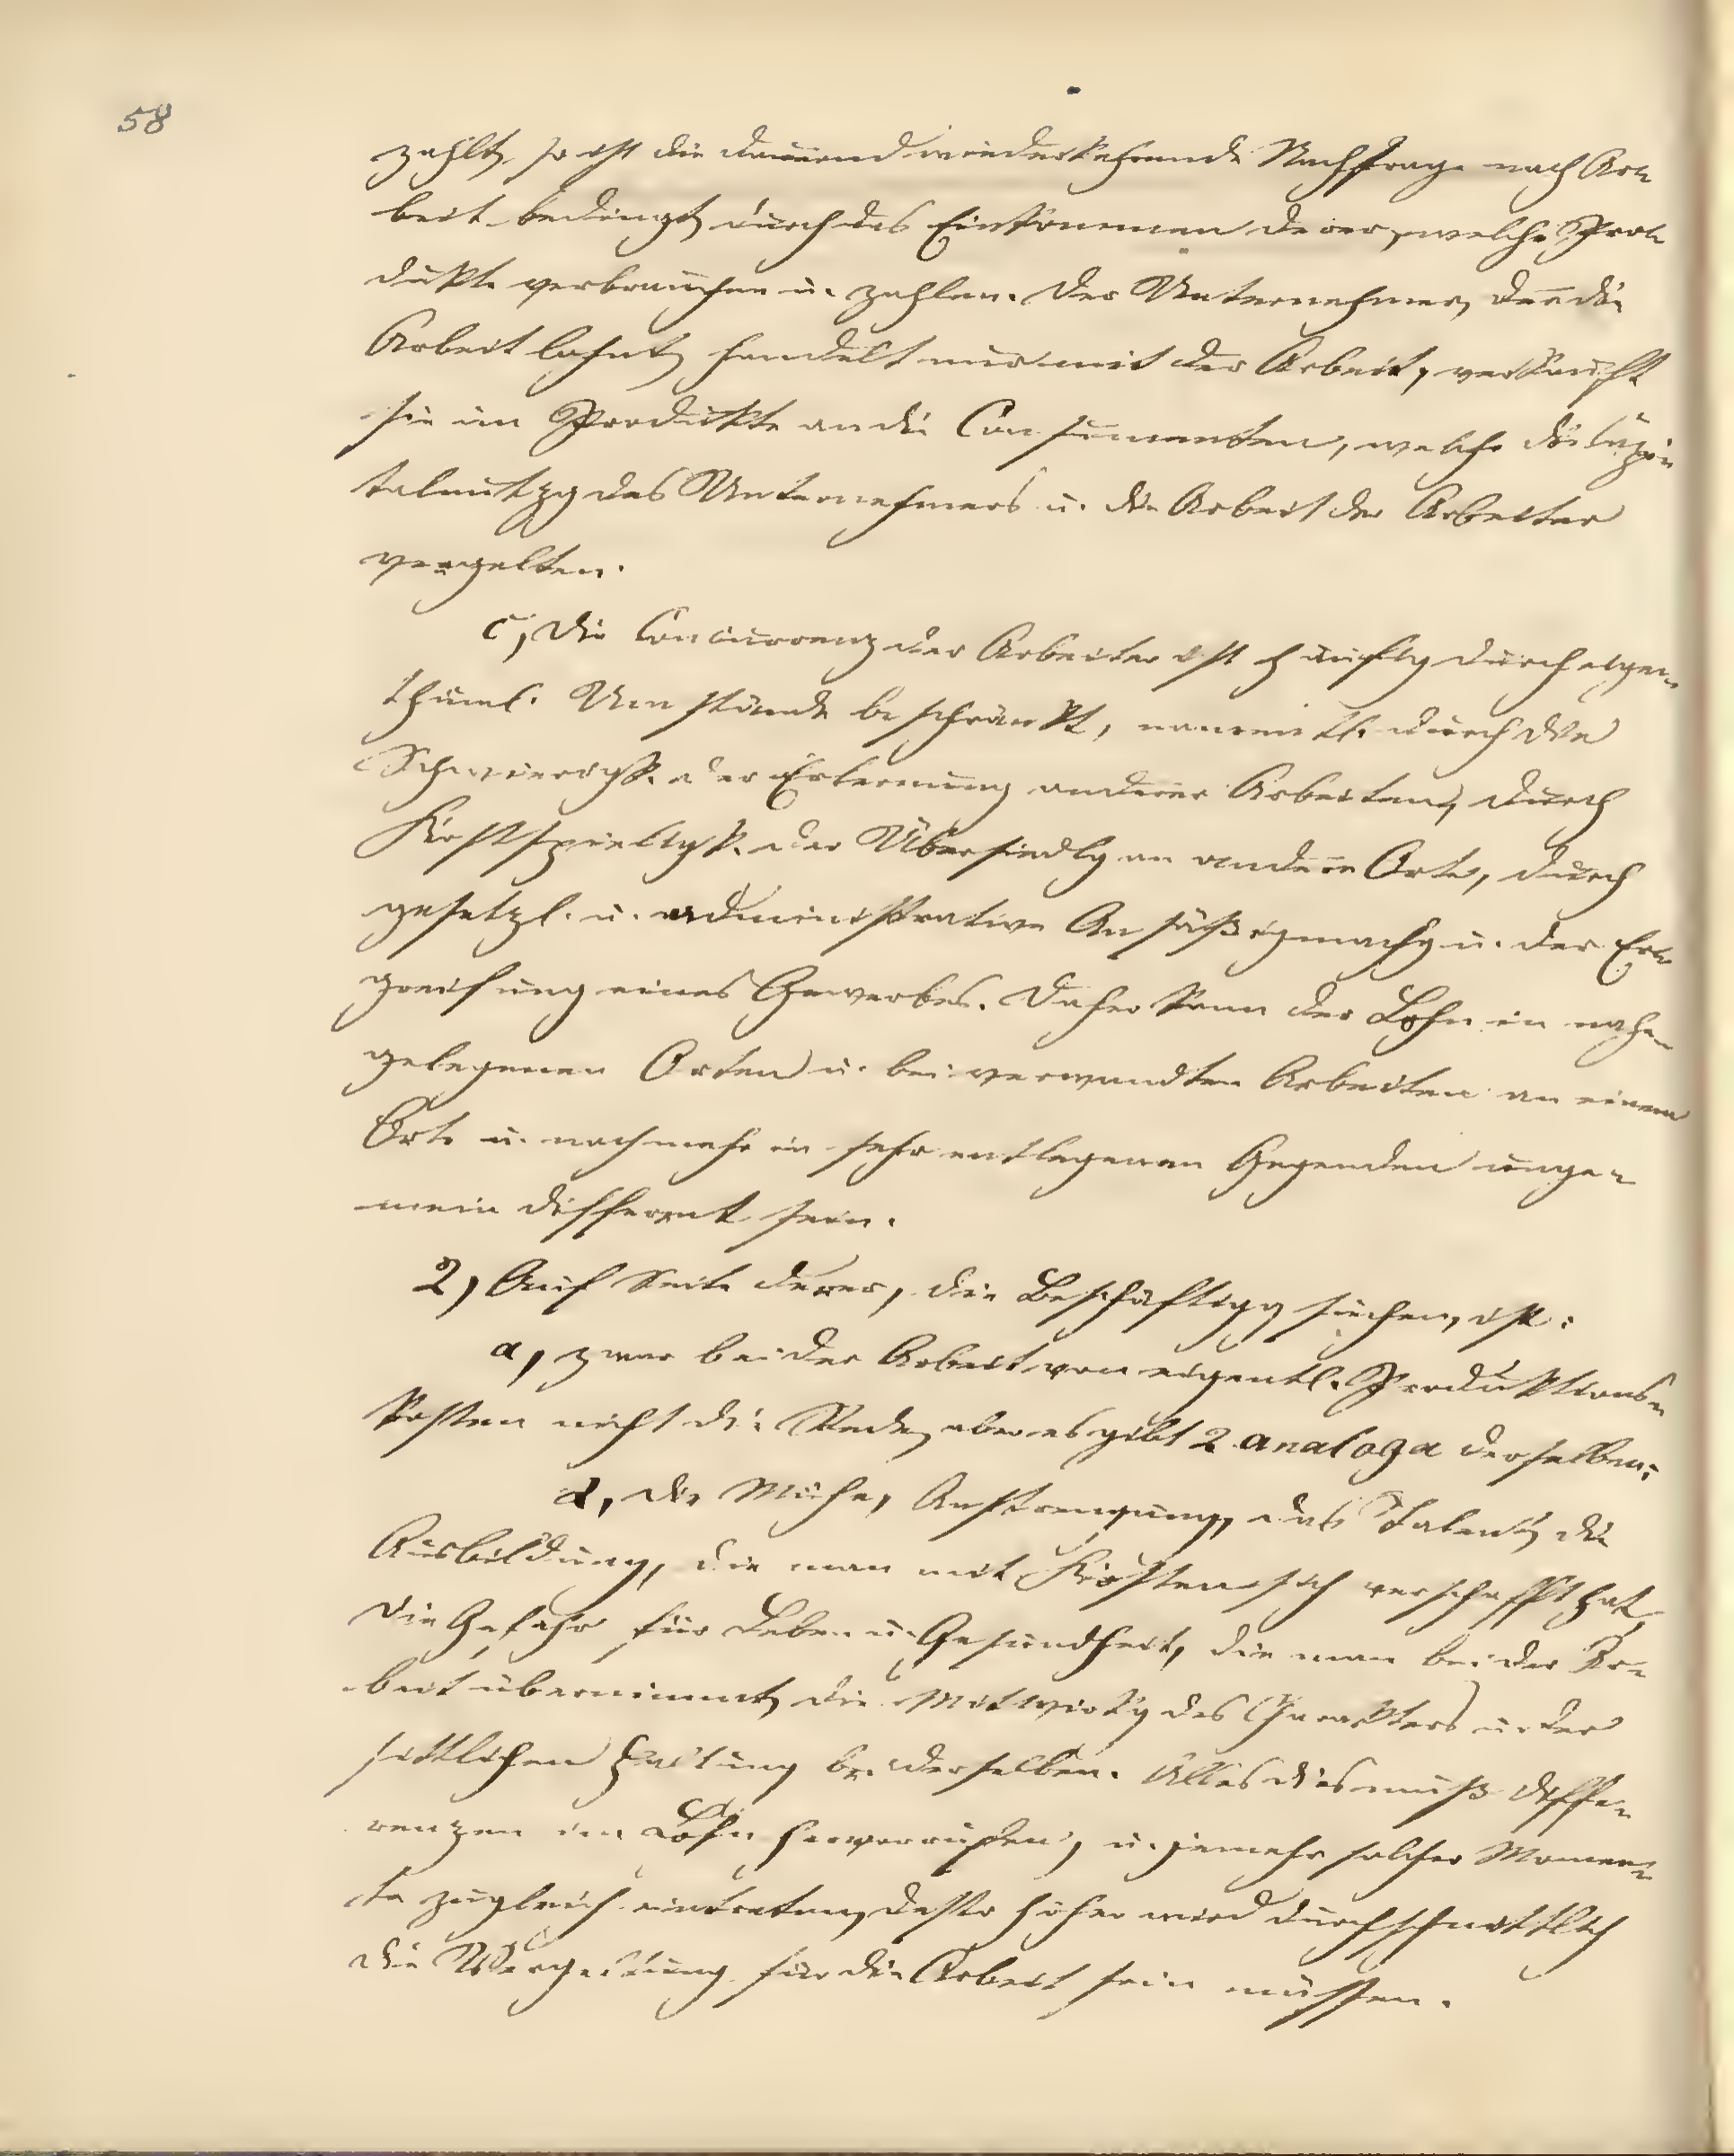 58
zahlt, so ist die dauernd wiederkehrende Nachfrage nach Ar-
beit bedingt durch das Einkommen derer, welche Pro-
dukte verbrauchen u. zahlen. Der Unternehmer, der die
Arbeit lohnt, handelt nur mit der Arbeit, verkauft
sie im Produkte an die Consumenten, welche die Capi-
talnutzg des Unternehmers u. die Arbeit der Arbeiter
vergelten.
c, Die Concurrenz der Arbeiter ist häufig durch eigen-
thüml. Umstände beschränkt, namentl. durch die
Schwierigk. der Erlernung anderer Arbeiten, durch
Kostspieligk. der Übersiedlg an andere Orte, durch
gesetzl. u. administrative Ansäßigmachg u. der Er-
greifung eines Gewerbes. Daher kann der Lohn in nahe-
gelegenen Orten u. bei verwandten Arbeiten an einem
Orte u. noch mehr in sehr entlegenen Gegenden unge-
mein different sein.
2, Auf Seite derer, die Beschäftigg suchen, ist:
a, zwar bei der Arbeit von eigentl. Produktions-
kosten nicht die Rede, aber es gibt 2 analoga derselben:
α, die Mühe, Anstrengung, das Talent, die
Ausbildung, die man mit Kosten sich verschafft hat,
die Gefahr für Leben u. Gesundheit, die man bei der Ar-
beit übernimmt, die Mitwirkg des Charakters u. der
sittlichen Haltung bei derselben. Alles dies muß Diffe-
renzen im Lohn hervorrufen, u. jemehr solcher Momen-
te zugleich eintreten, desto höher wird durchschnittlich
die Vergeltung für die Arbeit sein müssen.